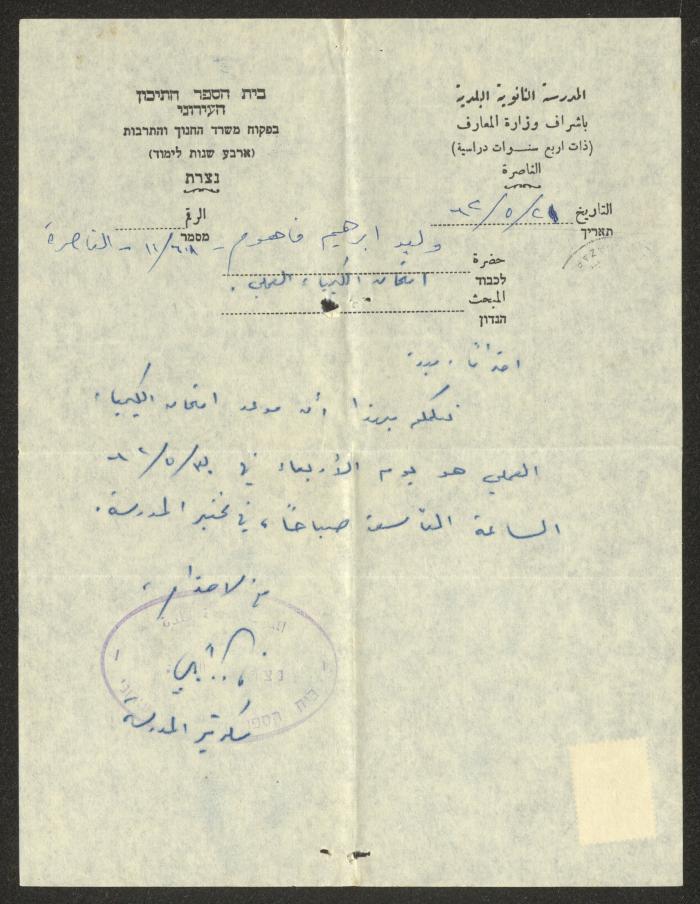 בית הספר התיכון
העירוני
בפקוח משרד החנוך והתרבות
(ארבע שנות לימוד)
נצרת
المدرسة الثانوية البلدية
باشراف وزارة المعارف
(ذات اربع سنوات دراسية)
الناصرة
التاريخ ٢١/٥/٦٢
תאריך
الرقم
מספר
حضرة وليد ابرهيم فاهوم - ٦٠٨/١١ - الناصرة
לכבוד
المبحث امتحان الكيمياء العملي.
הנדון
احتراماً وبعد
نعلمكم بهذا أن موعد امتحان الكيمياء
العملي هو يوم الأربعاء في ٣٠/٥/٦٢
الساعة التاسعة صباحاً، في مختبر المدرسة.
مع الاحترام،
سكرتير المدرسة
בית הספר